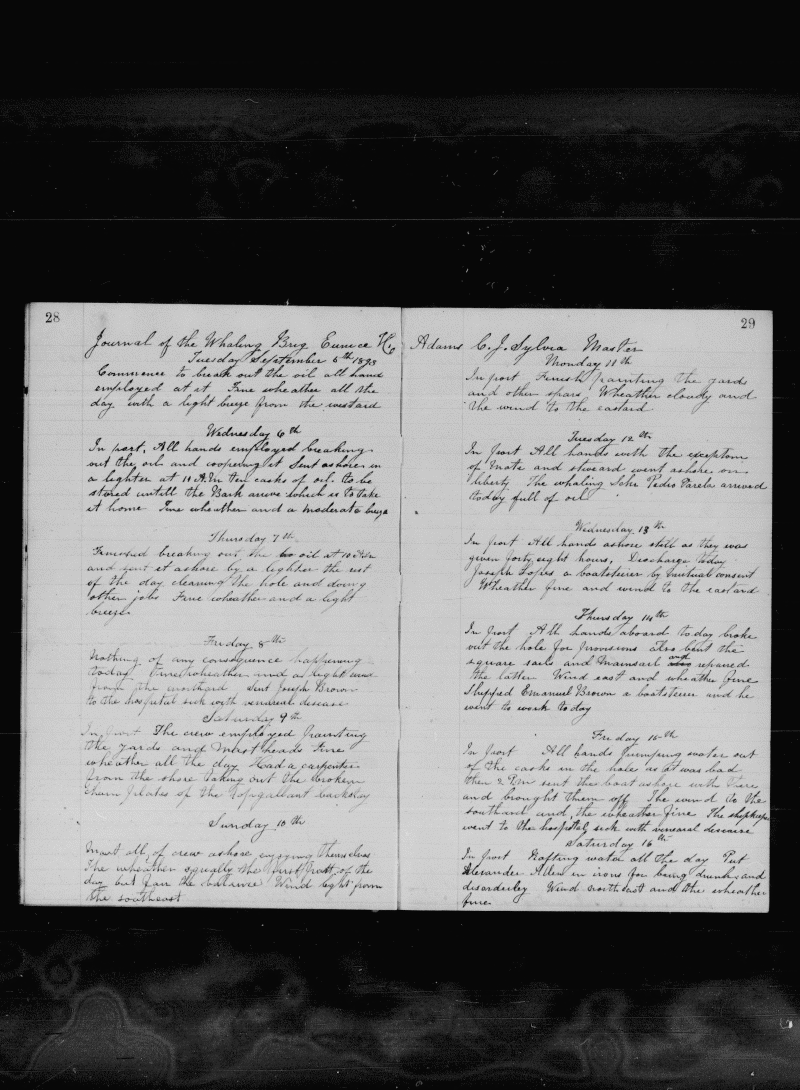 28
Journal of the Whaling Brig Eunice H.
Tuesday September 5th 1893
Commence to break out the oil all hand
employed at it Fine wheather all the
day with a light breeze from the westard
Wednesday 6th
In port. All hands employed breaking
out the oil and coopering it Sent ashore in
a lighter at 10 A.M ten casks of oil. to be
stored untill the Bark arrive which is to take
it home Fine wheather and a moderate breeze
Thursday 7th
Finished breaking out the oil at 10 A.M
and sent it ashore by a lighter the rest
of the day cleaning the hole and doing
other jobs Fine wheather and a light
breeze
Friday 8th
Nothing of any consequence happening
today Fine wheather and a light wind
from the northard Sent Joseph Brown
to the hospital sick with venereal desease
Saturday 9th
In port The crew employed painting
the yards and mast heads Fine
wheather all the day Had a carpenter
from the shore taking out the broken
chain plates of the topgallant backstay
Sunday 10th
Most all of crew ashore enjoying themselves
The wheather squally the first part of the
day but fair the balance Wind light from
the southeast
29
Adams C. J. Sylvia Master
Monday 11th
In port Finish painting the yards
and other spars Wheather cloudy and
the wind to the eastard
Tuesday 12th
In port All hands with the exception
of Mate and steward went ashore on
liberty The whaling Schr Pedro Varela arrived
today full of oil
Wednesday 13th
In port All hands ashore still as they was
given forty eight hours, Discharge today
Joseph Lopes a boatsteerer by mutual consent
Wheather fine and wind to the eastard
Thursday 14th
In port All hands aboard today broke
out the hole for provisions also bent the
square sails and Mainsail and repaired
the latter Wind east and wheather fine
Shipped Emanuel Brown a boatsteerer and he
went to work today
Friday 15th
In port All hands pumping water out
of the casks in the hole as it was bad
then 2 P.M sent the boat ashore with there
and brought them off The wind to the
southard and the wheather fine The shipkeeper
went to the hospital sick with venereal desease
Saturday 16th
In port Rafting water all the day Put
Alexander Allen in irons for being drunk and
disorderley Wind northeast and the wheather
fine